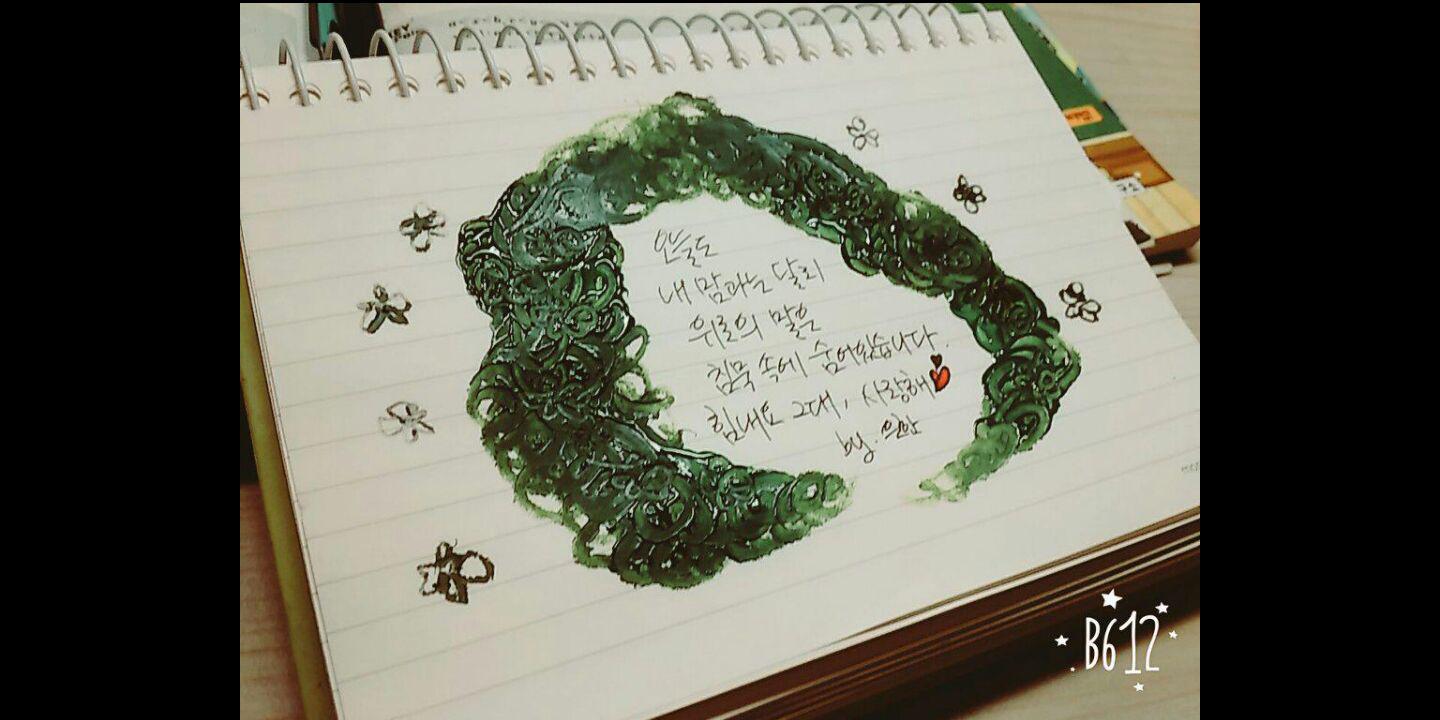 오늘도
내 맘과는 달리
위로의 말은
침묵 속에 숨어있습니다.
힘내요 그대, 사랑해
by.
B612